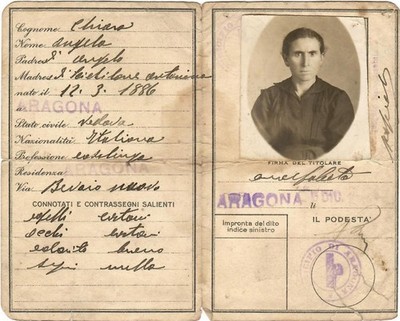 Cognome Chiara
Nome Angela
Padre d' Angelo
Madre d'
nato il 12.3.1886
a ARAGONA
Stato civile Vedova
Nazionalità Italiana
Professione casalinga
Residenza
Via Serraio nuovo
CONNOTATI E CONTRASSEGNI SALIENTI
capelli castani
occhi castani
colorito bruno
segni nulla
FIRMA DEL TITOLARE
analfabeta
ARAGONA
Impronta del dito
indice sinistro
IL PODESTÀ
MUNICIPIO DI ARAGONA